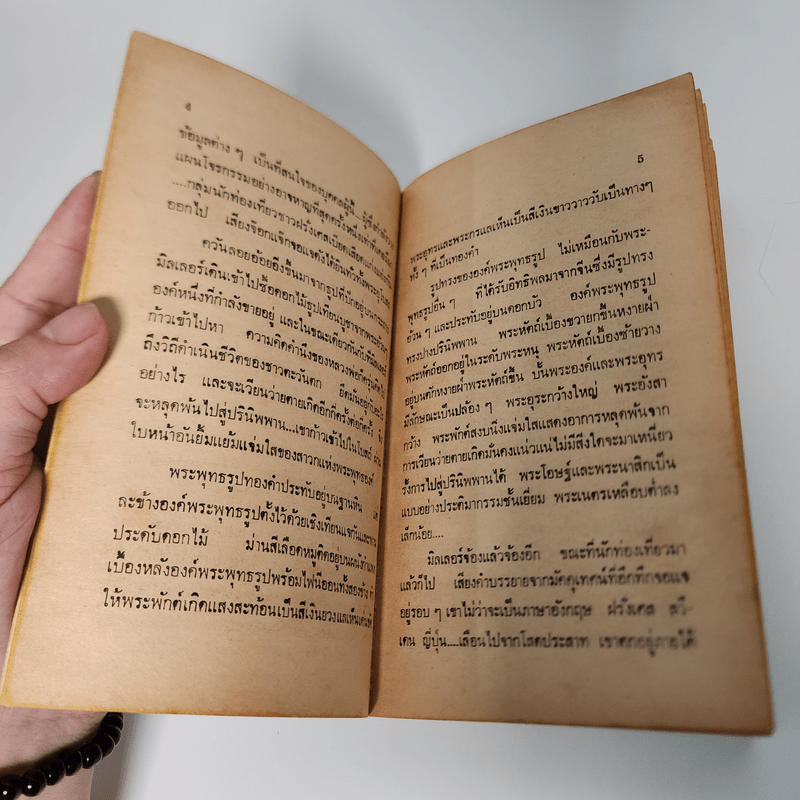 4
ข้อมูลต่าง ๆ เป็นที่สนใจของบุคคลผู้นี้...
แผนโจรกรรมอย่างอาจหาญที่สุดครั้งหนึ่งเท่าที่เคยมีมา
....กลุ่มนักท่องเที่ยวชาวฝรั่งเศส
ออกไป เสียงจ๊อกแจ๊กจอแจดังได้ยินทั่วทั้งพระอุโบสถ
ควันลอยอ้อยอิ่งขึ้นมาจากธูปที่ปักอยู่บน
มิลเลอร์เดินเข้าไปซื้อดอกไม้ธูปเทียนบูชาจาก
องค์หนึ่งที่กำลังขายอยู่ และในขณะเดียวกันกับที่มิลเลอร์
ก้าวเข้าไปหา ความคิดคำนึงของหลวงพ่อก็
ถึงวิถีดำเนินชีวิตของชาวตะวันตก ยึดมั่นอยู่กับ
อย่างไร และจะเวียนว่ายตายเกิดอีกกี่ครั้งต่อกี่ครั้ง
จะหลุดพ้นไปสู่ปรินิพพาน...เขาก้าวเข้าไปในโบสถ์
ใบหน้าอันยิ้มแย้มแจ่มใสของสาวกแห่งพระพุทธองค์
พระพุทธรูปทองคำประทับอยู่บนฐานหิน
ละข้างองค์พระพุทธรูปตั้งไว้ด้วยเชิงเทียนแจกันและ
ประดับดอกไม้ ม่านสีเลือดหมูติดอยู่บนผนังกำแพง
เบื้องหลังองค์พระพุทธรูปพร้อมไฟนีออนทั้งสองข้าง
ให้พระพักต์เกิดแสงสะท้อนเป็นสีเงินยวงแลเห็นเด่นชัด
5
พระอุทรและพระกรแลเห็นเป็นสีเงินขาววาววับเป็นทางๆ
ทั้ง ๆ ที่เป็นทองคำ
รูปทรงขององค์พระพุทธรูป ไม่เหมือนกับพระ-
พุทธรูปอื่น ๆ ที่ได้รับอิทธิพลมาจากจีนซึ่งมีรูปทรง
อ้วน ๆ และประทับอยู่บนดอกบัว องค์พระพุทธรูป
ทรงปางปรินิพพาน พระหัตถ์เบื้องขวายกขึ้นหงายฝ่า
พระหัตถ์ออกอยู่ในระดับพระหนุ พระหัตถ์เบื้องซ้ายวาง
อยู่บนตักหงายฝ่าพระหัตถ์ขึ้น บั้นพระองค์และพระอุทร
มีลักษณะเป็นปล้อง ๆ พระอุระกว้างใหญ่ พระอังสา
กว้าง พระพักต์สงบนิ่งแจ่มใสแสดงอาการหลุดพ้นจาก
การเวียนว่ายตายเกิดมั่นคงแน่วแน่ไม่มีสิ่งใดจะมาเหนี่ยว
รั้งการไปสู่ปรินิพพานได้ พระโอษฐ์และพระนาสิกเป็น
แบบอย่างประติมากรรมชั้นเยี่ยม พระเนตรเหลือบต่ำลง
เล็กน้อย....
มิลเลอร์จ้องแล้วจ้องอีก ขณะที่นักท่องเที่ยวมา
แล้วก็ไป เสียงคำบรรยายจากมัคคุเทศน์ที่อึกทึกจอแจ
อยู่รอบ ๆ เขาไม่ว่าจะเป็นภาษาอังกฤษ ฝรั่งเศส สวี-
เดน ญี่ปุ่น....เลือนไปจากโสตประสาท เขาตกอยู่ภายใต้